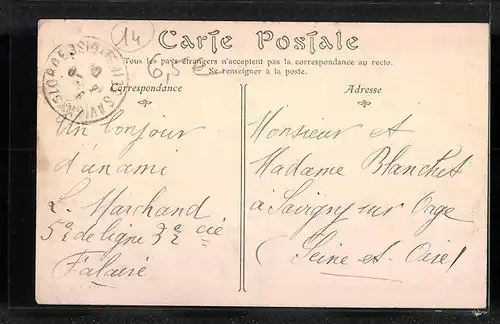 14
Carte Postale
Tous les pays étrangers n'acceptent pas la correspondance au recto.
Se renseigner à la poste.
6,5 €
Correspondance
Adresse
Un bonjour
d'un ami
L. Marchand
5e de ligne 3e cie
Falaise
Monsieur et
Madame Blanchet
à Savigny sur Orge
(Seine et Oise)